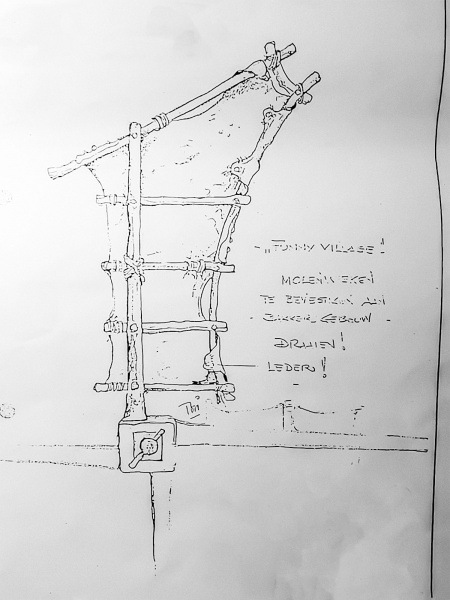 - „FUNNY VILLAGE!
MOLENWIEKEN
TE BEVESTIGEN AAN
- BAKKER GEBOUW -
DRAAIEN!
LEDER!